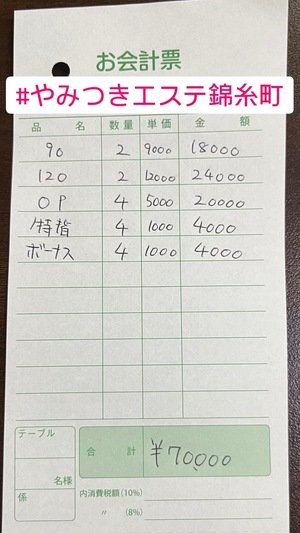 お会計票
#やみつきエステ錦糸町
品 名 数量 単価 金 額
90 2 9000 18000
120 2 12000 24000
OP 4 5000 20000
特指 4 1000 4000
ボーナス 4 1000 4000
テーブル
名様
係
合 計 ¥70,000
内消費税額(10%)
〃 (8%)